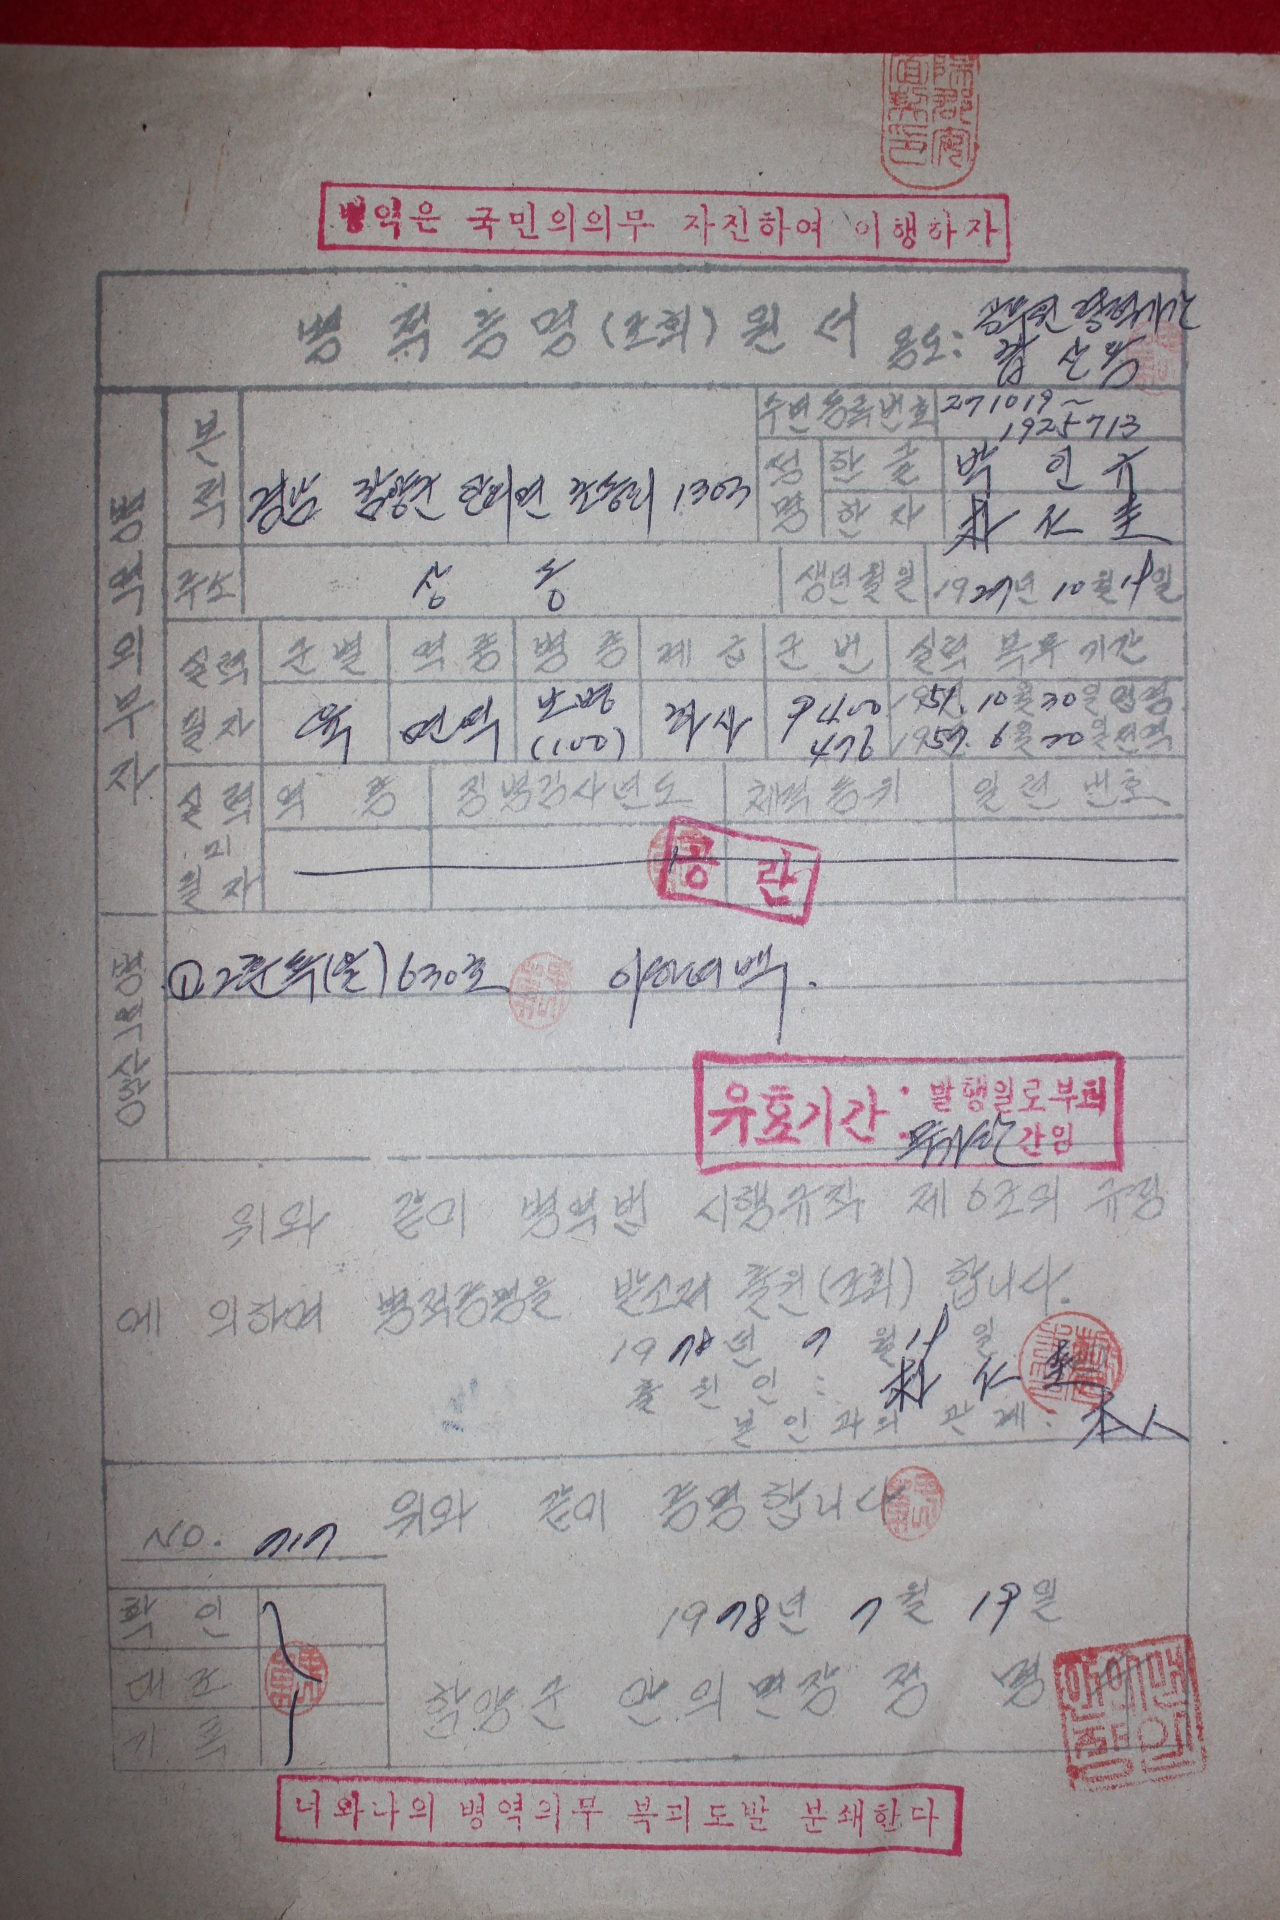 병역은 국민의의무 자진하여 이행하자
병적증명(조회)원서 용도: 공무원
본적
경남 함양군 안의면 1303
주민등록번호 271019~
1925713
성명 한글 박인규
한자 朴仁圭
주소 상동
생년월일 1927년 10월 19일
병역의무자
실력필자
군별 역종 병종 계급 군번 실력복무기간
육 면역 보병(100) 하사 9400476
195 . 10월 30일
195 . 6월 20일
실력미필자
역종 징병검사년도 체격등위 일련번호
공란
① (을) 630호 이하여백.
유효기간 : 발행일로부터
간임
위와 같이 병역법 시행규칙 제6조의 규정
에 의하여 병적증명을 출원(조회)합니다.
1978년 7월 19일
출원인: 朴仁圭
본인과의 관계: 本人
위와 같이 증명합니다
NO. 717
확인
대조
기록
1978년 7월 19일
함양군 안의면장 정
너와나의 병역의무 북괴도발 분쇄한다